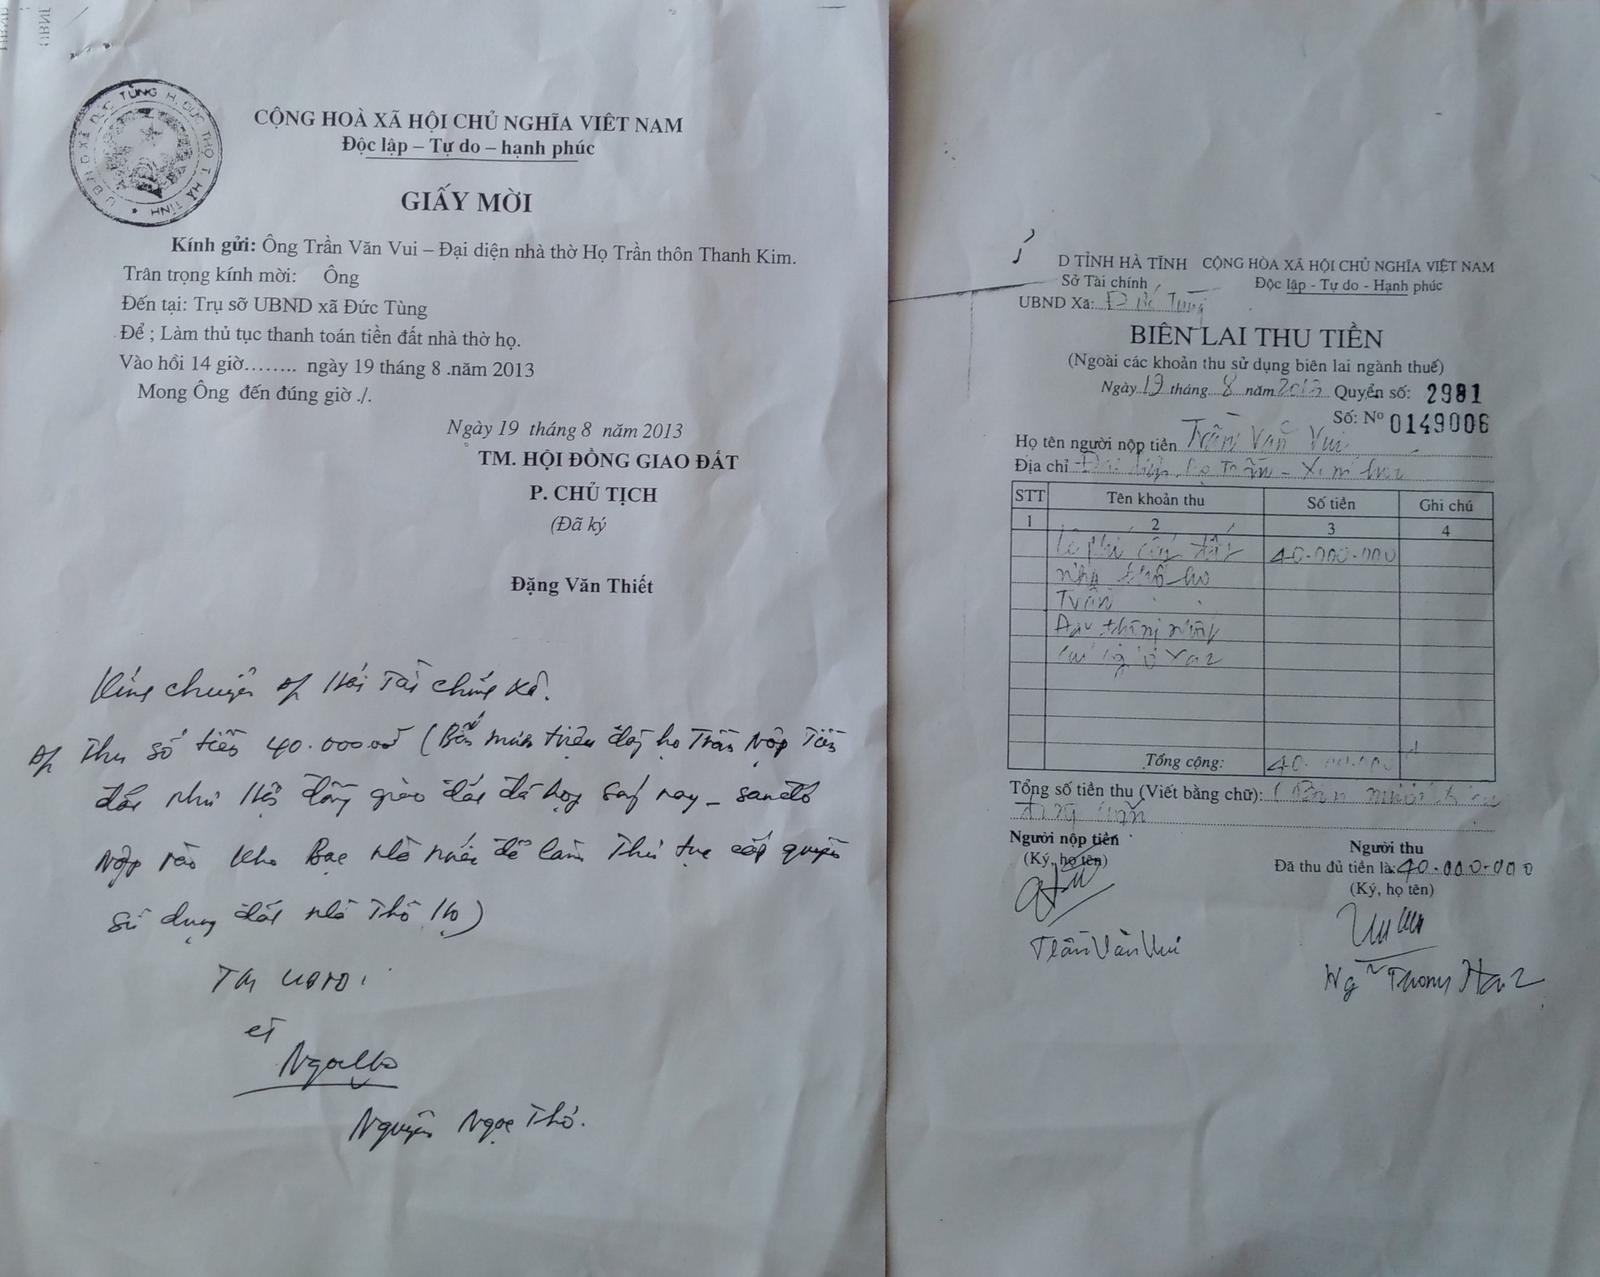 U.B.N.D XÃ ĐỨC TÙNG H. ĐỨC THỌ T. HÀ TĨNH
CỘNG HOÀ XÃ HỘI CHỦ NGHĨA VIÊT NAM
Độc lập – Tự do – hạnh phúc
GIẤY MỜI
Kính gửi: Ông Trần Văn Vui – Đại diện nhà thờ Họ Trần thôn Thanh Kim.
Trân trọng kính mời: Ông
Đến tại: Trụ sỡ UBND xã Đức Tùng
Để ; Làm thủ tục thanh toán tiền đất nhà thờ họ.
Vào hồi 14 giờ........ ngày 19 tháng 8 .năm 2013
Mong Ông đến đúng giờ ./.
Ngày 19 tháng 8 năm 2013
TM. HỘI ĐỒNG GIAO ĐẤT
P. CHỦ TỊCH
(Đã ký
Đặng Văn Thiết
Kính chuyển Tài chính xã.
Thu số tiền 40.000.00đ (Bốn mươi triệu đồng họ Trần Nộp Tiền
đất như Hội đồng giao đất đã họp nay – sau đó
Nộp vào Kho Bạc nhà nước để làm Thủ tục cấp quyền
sử dụng đất nhà Thờ Họ)
TM UBND
CT
Nguyễn Ngọc Thọ.
D TỈNH HÀ TĨNH CỘNG HÒA XÃ HỘI CHỦ NGHĨA VIỆT NAM
Sở Tài chính Độc lập - Tự do - Hạnh phúc
UBND Xã: Đức Tùng
BIÊN LAI THU TIỀN
(Ngoài các khoản thu sử dụng biên lai ngành thuế)
Ngày 19 tháng 8 năm 2013 Quyển số: 2981
Số: Nº 0149006
Họ tên người nộp tiền Trần Văn Vui
Địa chỉ Đại diện họ Trần -
STT Tên khoản thu Số tiền Ghi chú
1 2 3 4
Lệ phí cấp đất 40.000.000
nhà thờ họ
Trần
Tổng cộng: 40.000.000
Tổng số tiền thu (Viết bằng chữ): (Bốn mươi triệu
đồng chẵn
Người nộp tiền Người thu
(Ký, họ tên) Đã thu đủ tiền là: 40.000.000
(Ký, họ tên)
Trần Văn Vui